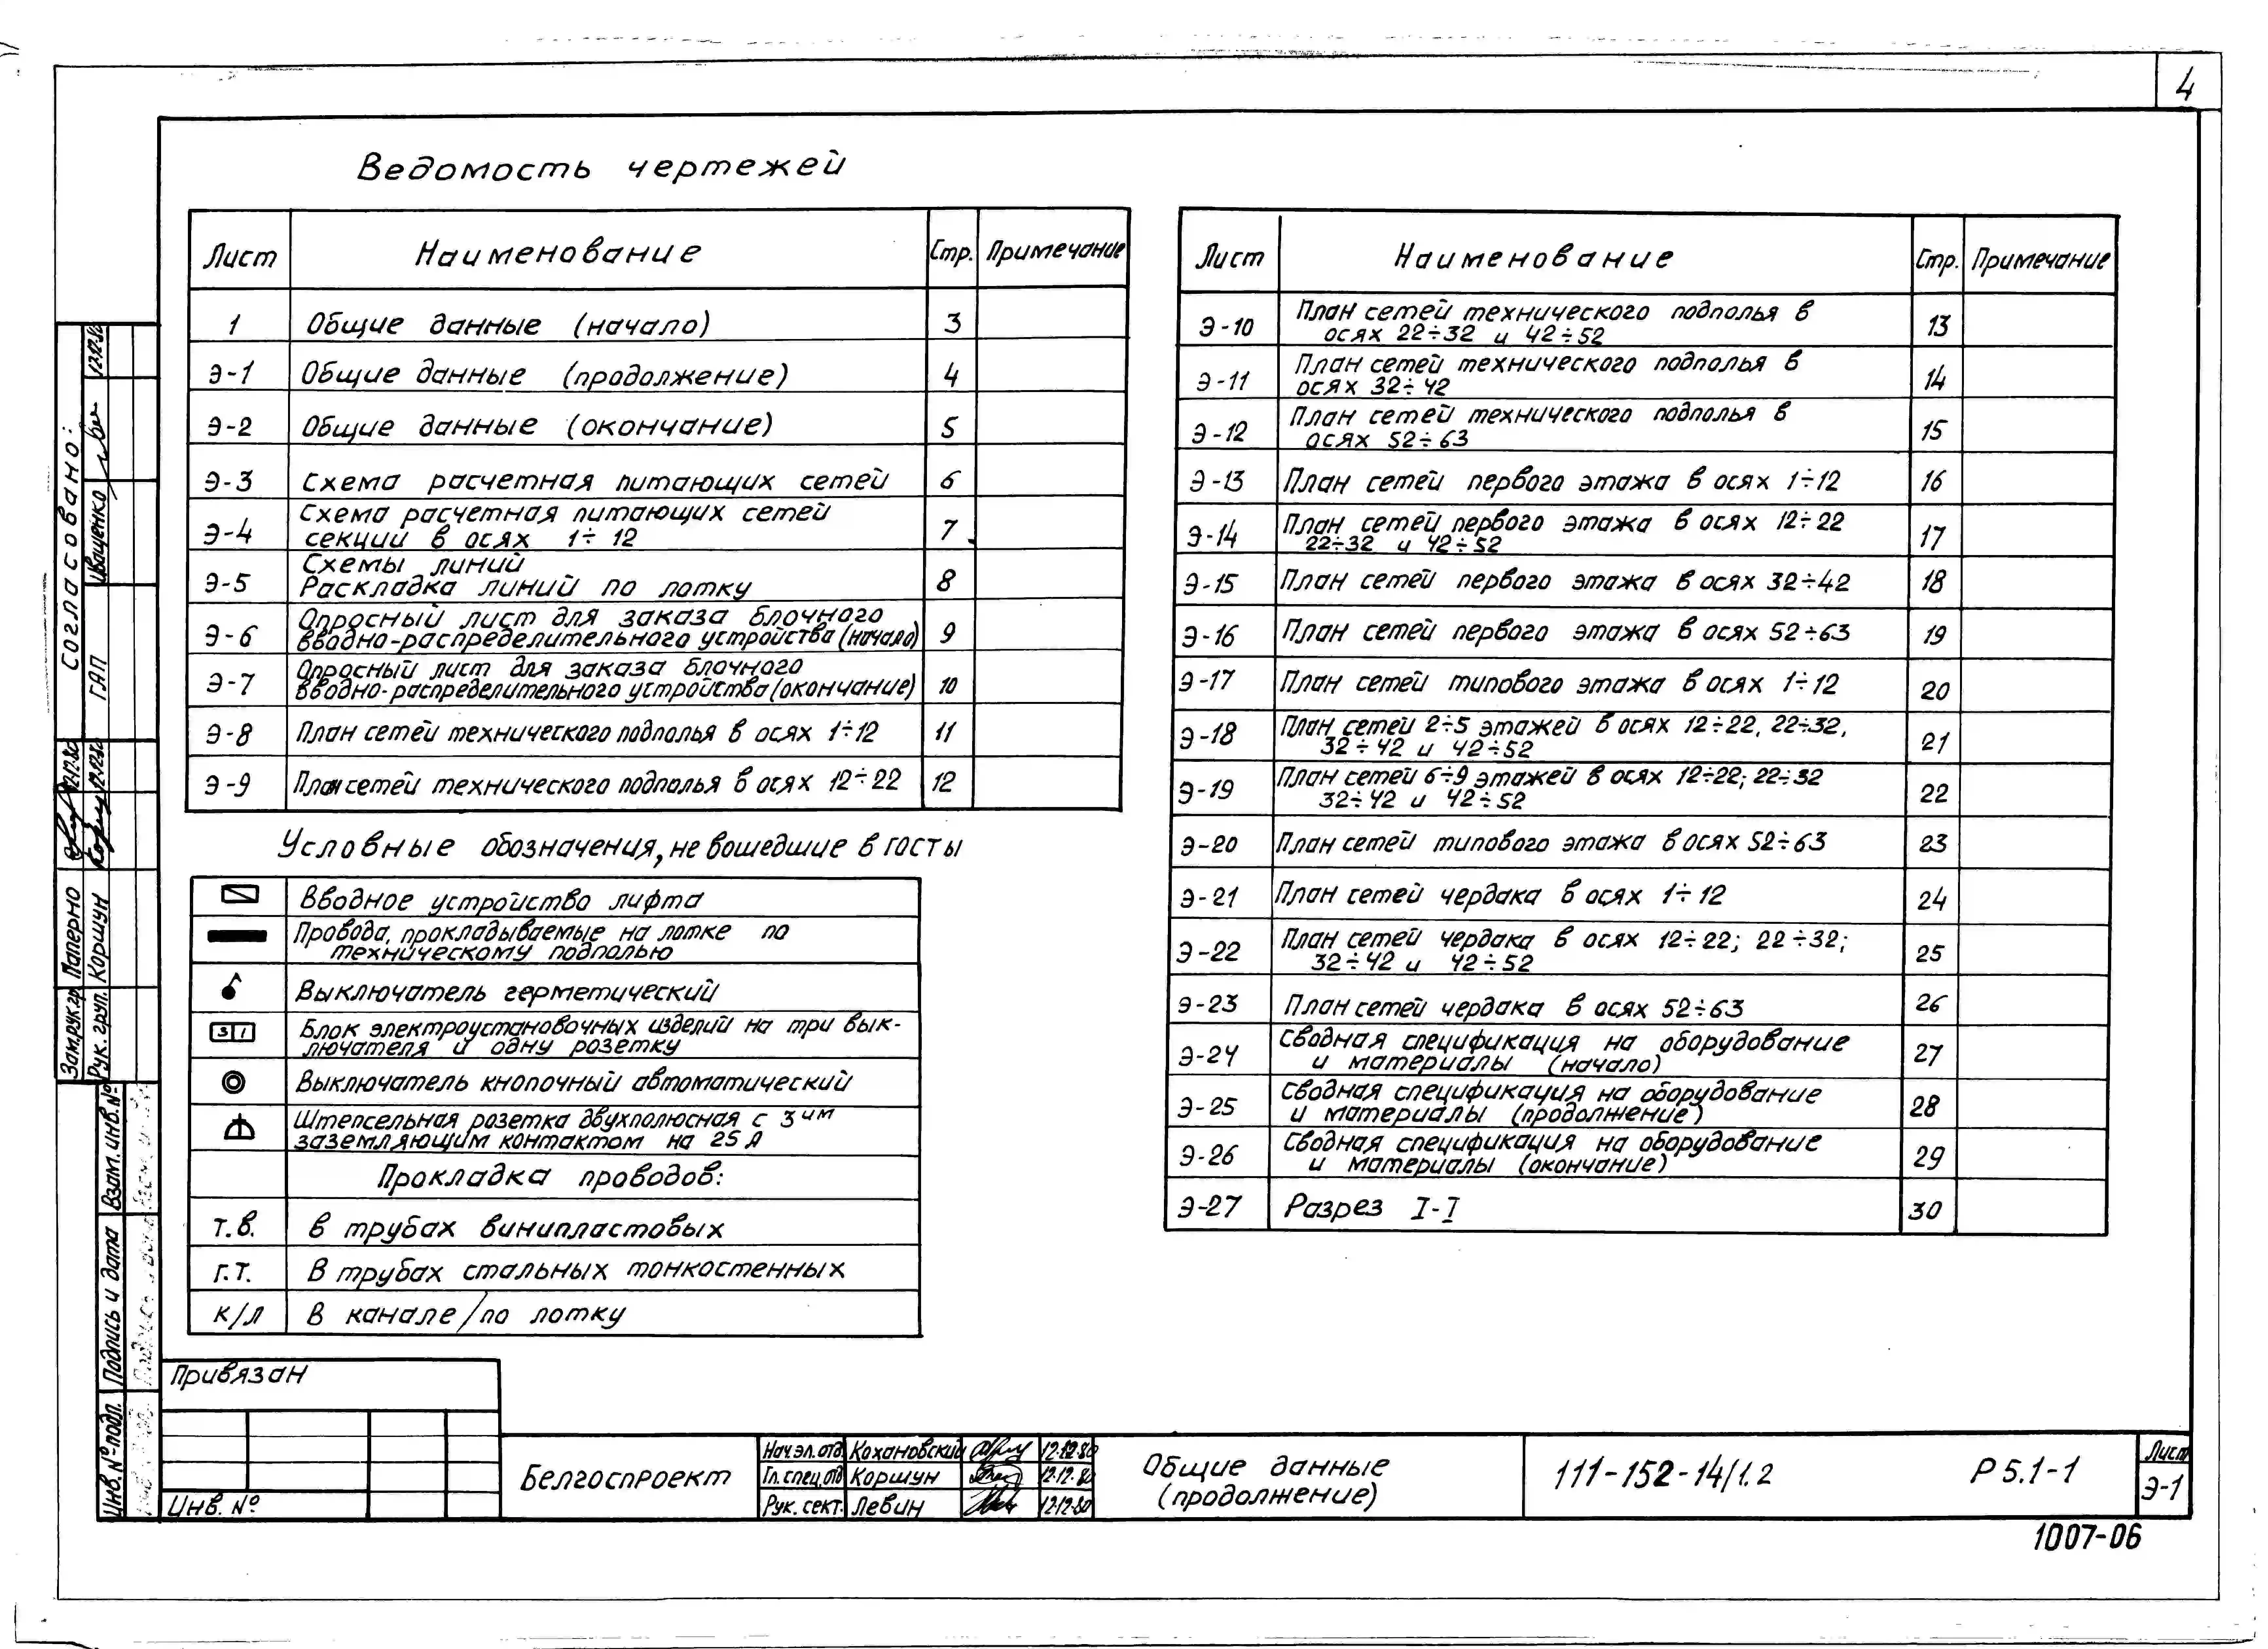 4
Ведомость чертежей
Лист Наименование Стр. Примечание
1 Общие данные (начало) 3
Э-1 Общие данные (продолжение) 4
Э-2 Общие данные (окончание) 5
Э-3 Схема расчетная питающих сетей 6
Э-4 Схема расчетная питающих сетей
секции в осях 1÷12 7
Э-5 Схемы линий
Раскладка линий по лотку 8
Э-6 Опросный лист для заказа блочного
вводно-распределительного устройства (начало) 9
Э-7 Опросный лист для заказа блочного
вводно-распределительного устройства (окончание) 10
Э-8 План сетей технического подполья в осях 1÷12 11
Э-9 План сетей технического подполья в осях 12÷22 12
Условные обозначения, не вошедшие в госты
Вводное устройство лифта
Провода, прокладываемые на лотке по
техническому подполью
Выключатель герметический
3 1 Блок электроустановочных изделий на три вык-
лючателя и одну розетку
Выключатель кнопочный автоматический
Штепсельная розетка двухполюсная с 3им
заземляющим контактом на 25 А
Прокладка проводов:
т.в. в трубах винипластовых
г.т. В трубах стальных тонкостенных
к/л В канале/по лотку
Лист Наименование Стр. Примечание
Э-10 План сетей технического подполья в
осях 22÷32 и 42÷52 13
Э-11 План сетей технического подполья в
осях 32÷42 14
Э-12 План сетей технического подполья в
осях 52÷63 15
Э-13 План сетей первого этажа в осях 1÷12 16
Э-14 План сетей первого этажа в осях 12÷22
22÷32 и 42÷52 17
Э-15 План сетей первого этажа в осях 32÷42 18
Э-16 План сетей первого этажа в осях 52÷63 19
Э-17 План сетей типового этажа в осях 1÷12 20
Э-18 План сетей 2÷5 этажей в осях 12÷22, 22÷32,
32÷42 и 42÷52 21
Э-19 План сетей 6÷9 этажей в осях 12÷22; 22÷32
32÷42 и 42÷52 22
Э-20 План сетей типового этажа в осях 52÷63 23
Э-21 План сетей чердака в осях 1÷12 24
Э-22 План сетей чердака в осях 12÷22; 22÷32;
32÷42 и 42÷52 25
Э-23 План сетей чердака в осях 52÷63 26
Э-24 Сводная спецификация на оборудование
и материалы (начало) 27
Э-25 Сводная спецификация на оборудование
и материалы (продолжение) 28
Э-26 Сводная спецификация на оборудование
и материалы (окончание) 29
Э-27 Разрез I-I 30
Согласовано:
ГАП Иващенко 12.12.80
Зам.рук.гр. Паперно 12.12.80
Рук. груп. Коршун 12.12.80
Взам. инв. №
Подпись и дата
Инв. № подл.
Привязан
Инв. №
Белгоспроект
Нач эл. отд Кохановский 12.12.80
Гл. спец. отд Коршун 12.12.80
Рук. сект. Левин 12.12.80
Общие данные
(продолжение)
111-152-14/1.2
Р 5.1-1
Лист
Э-1
1007-06